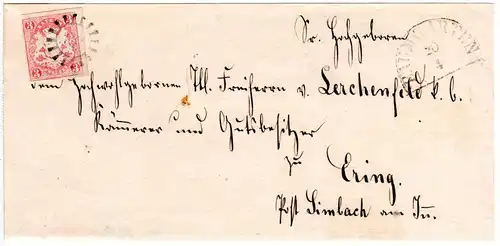 3 3
Sr. Hochgeboren
20
4
dem Hochwohlgebornen Tl. Freiherrn v. Lerchenfeld k. b.
Kämmerer und Gutsbesitzer
zu
Ering.
Post Simbach am In̄.